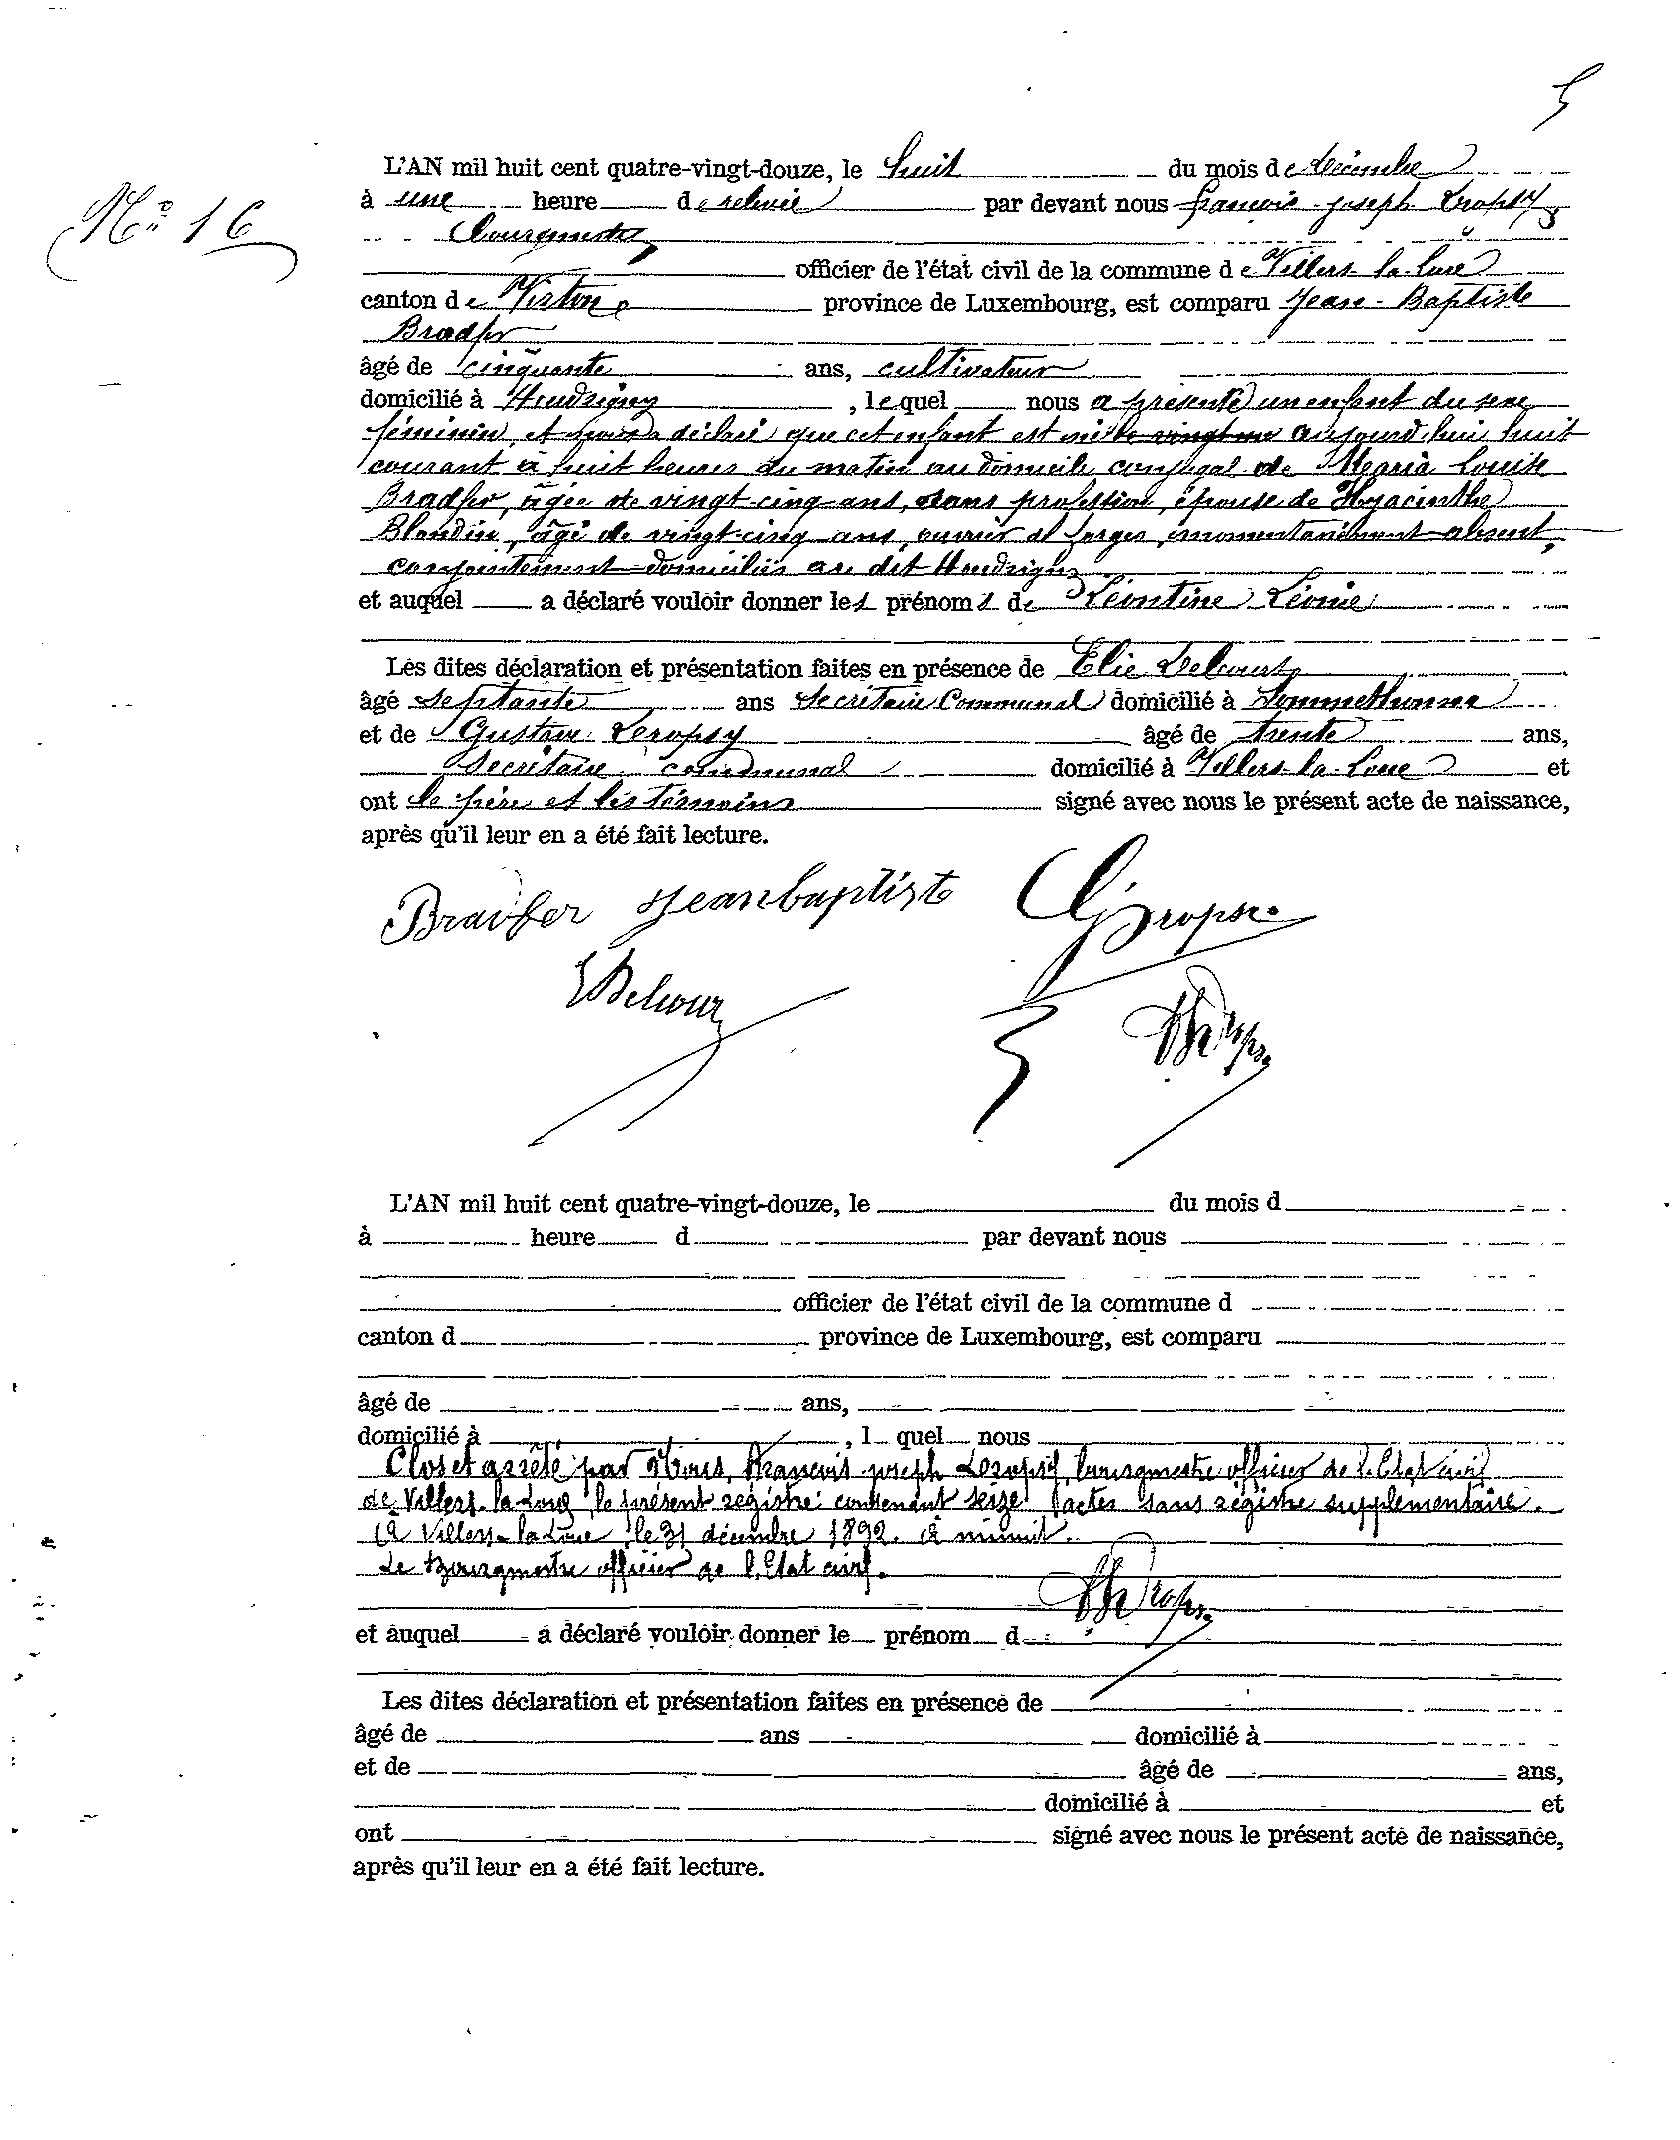 5
L'AN mil huit cent quatre-vingt-douze, le huit du mois de décembre
N° 16
à une heure de relevée par devant nous françois-joseph Leropsy
Bourgmestre
officier de l'état civil de la commune de Villers-la-Loue
canton de Virton province de Luxembourg, est comparu Jean-Baptiste
Bradfer
âgé de cinquante ans, cultivateur
domicilié à Houdrigny, lequel nous a présenté un enfant du sexe
féminin, et nous a déclaré que cet enfant est né le vingt un aujourd'hui huit
courant à huit heures du matin au domicile conjugal de Maria Louise
Bradfer, âgée de vingt-cinq ans, sans profession, épouse de Hyacinthe
Blondin, âgé de vingt-cinq ans, ouvrier de forges, momentanément absent,
conjointement domiciliés au dit Houdrigny
et auquel a déclaré vouloir donner les prénoms de Léontine Léonie
Les dites déclaration et présentation faites en présence de Elie Delcourt
âgé septante ans Secrétaire Communal domicilié à Sommethonne
et de Gustave Leropsy âgé de trente ans,
Secrétaire communal domicilié à Villers-la-Loue et
ont le père et les témoins signé avec nous le présent acte de naissance,
après qu'il leur en a été fait lecture.
Bradfer Jeanbaptiste GLeropsy
EDelcour
L'AN mil huit cent quatre-vingt-douze, le du mois d
à heure d par devant nous
officier de l'état civil de la commune d
canton d province de Luxembourg, est comparu
âgé de ans,
domicilié à , l quel nous
Clos et arrêté par Nous, François joseph Leropsy, bourgmestre officier de l'Etat civil
de Villers-la-Loue, le présent registre contenant seize actes sans régistre supplémentaire.
à Villers-la-Loue, le 31 décembre 1892. à minuit.
Le Bourgmestre officier de l'Etat civil.
et auquel a déclaré vouloir donner le prénom d
Les dites déclaration et présentation faites en présence de
âgé de ans domicilié à
et de âgé de ans,
domicilié à et
ont signé avec nous le présent acte de naissance,
après qu'il leur en a été fait lecture.